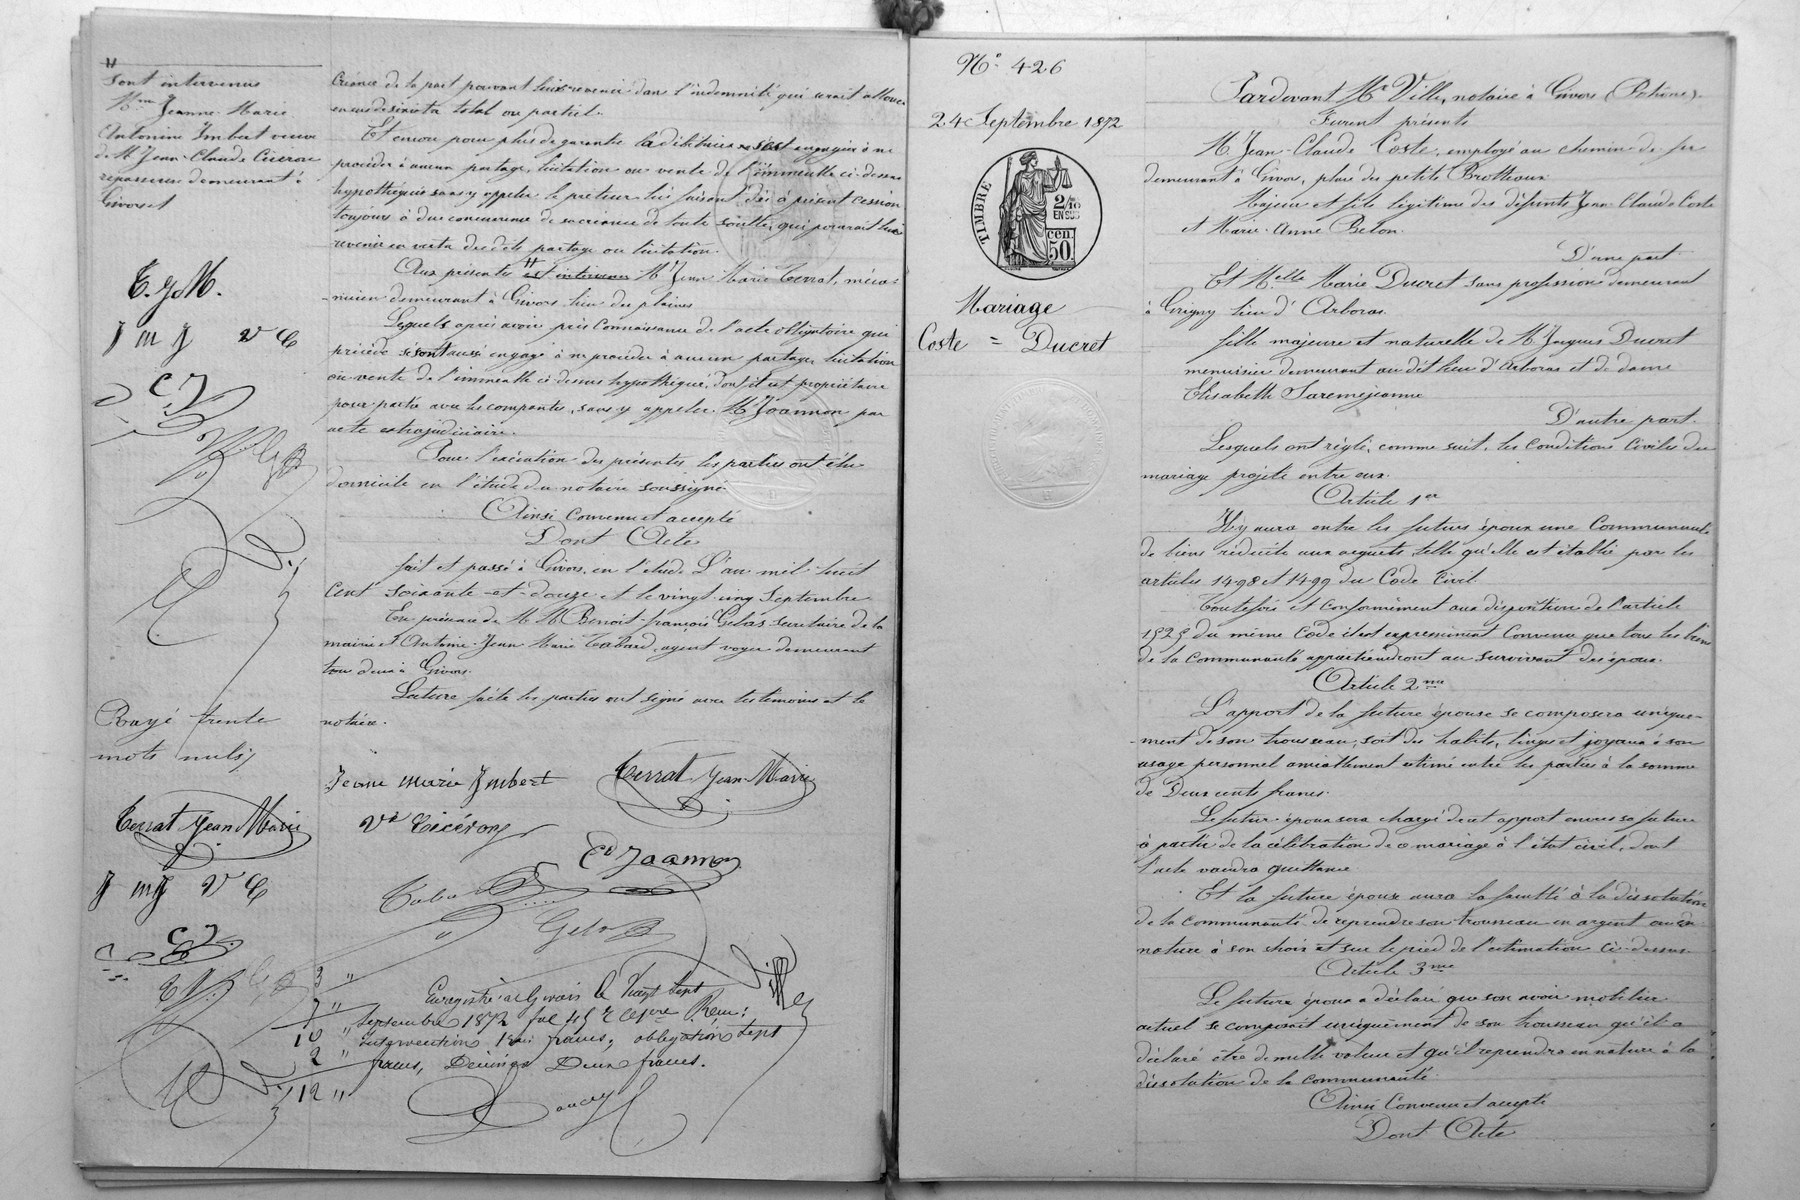 Sont intervenus
Mme Jeanne Marie
Antoinine Imbert veuve
de Mr Jean Claude Ciceron
repasseuse demeurant à
Givors et
T. J M.
J m J V C
C. J
Rayé trente
mots nuls
Terrat Jean Marie
J mJ V C
C J.
créance de la part pouvant leur revenir dans l'indemnité qui serait allouée
en cas de sinistre total ou partiel.
Et encore pour plus de garantie la débitrice s'est engagée à ne
procéder à aucun partage, licitation ou vente de l'immeuble ci-dessus
hypothéqué sans y appeler le prêteur lui faisant dès à présent cession
toujours à due concurrence de sa créance de toute soulte, qui pourrait lui
revenir en vertu desdits partage ou licitation.
Aux présentes est intervenu Mr Jean Marie Terrat, méca-
nicien demeurant à Givors lieu des plaines
Lesquels après avoir pris connaissance de l'acte obligatoire qui
précède se sont aussi engagé à ne procéder à aucun partage, licitation
ou vente de l'immeuble ci-dessus hypothéqué, dont il est propriétaire
pour partie avec les comparantes, sans y appeler Mr Joannon par
acte extrajudiciaire.
Pour l'exécution des présentes les parties ont élu
domicile en l'étude du notaire soussigné
Ainsi convenu et accepté
Dont Acte
fait et passé à Givors, en l'étude L'an mil huit
cent soixante-et-douze et le vingt cinq Septembre
En présence de M. M. Benoit-françois Gelas secrétaire de la
mairie et Antoine Jean Marie Tabard, agent voyer demeurant
tous deux à Givors.
Lecture faite les parties ont signé avec les témoins et le
notaire.
Jeanne marie Imbert Terrat Jean Marie
Ve Cicéron
Joannon
Gelas B
3 "
7 " Enregistré à Givors le vingt sept
10 " Septembre 1872 fol 45 Reçu:
2 " Intervention trois francs, obligation sept
12 " francs, Décimes Deux francs.
Ville
N° 426
24 Septembre 1872
TIMBRE
2/10
EN SUS
50 cen.
Mariage
Coste = Ducret
Pardevant Me Ville, notaire à Givors (Rhône).
Furent présents
M. Jean-Claude Coste, employé au chemin de fer
demeurant à Givors, place des petits Brotteaux
Majeur et fils légitime des défunts Jean Claude Coste
et Marie-Anne Belon.
D'une part
Et Melle Marie Ducret sans profession demeurant
à Grigny lieu d'Arboras.
fille majeure et naturelle de M. Jacques Ducret
menuisier demeurant au dit lieu d'Arboras et de dame
Elisabeth Saremejeanne
D'autre part.
Lesquels ont réglé, comme suit, les conditions civiles du
mariage projeté entre eux.
Article 1er
Il y aura entre les futurs époux une Communauté
de biens réduite aux acquets telle qu'elle est établie par les
articles 1498 et 1499 du Code Civil
Toutefois et conformément aux disposition de l'article
1525 du même Code il est expressément convenu que tous les biens
de la communauté appartiendront au survivant des époux.
Article 2me
L'apport de la future épouse se composera unique-
-ment de son trousseau, soit des habits, linges et joyaux à son
usage personnel amiablement estimé entre les parties à la somme
de Deux cents francs.
Le futur époux sera chargé de cet apport envers sa future
à partir de la célébration de ce mariage à l'état civil, dont
l'acte vaudra quittance
Et la future épouse aura la faculté à la dissolution
de la communauté de reprendre son trousseau en argent ou en
nature à son choix et sur le pied de l'estimation ci-dessus
Article 3me
Le futur époux a déclaré que son avoir mobilier
actuel se composait uniquement de son trousseau qu'il a
déclaré être de nulle valeur et qu'il reprendra en nature à la
dissolution de la communauté.
Ainsi convenu et accepté
Dont Acte